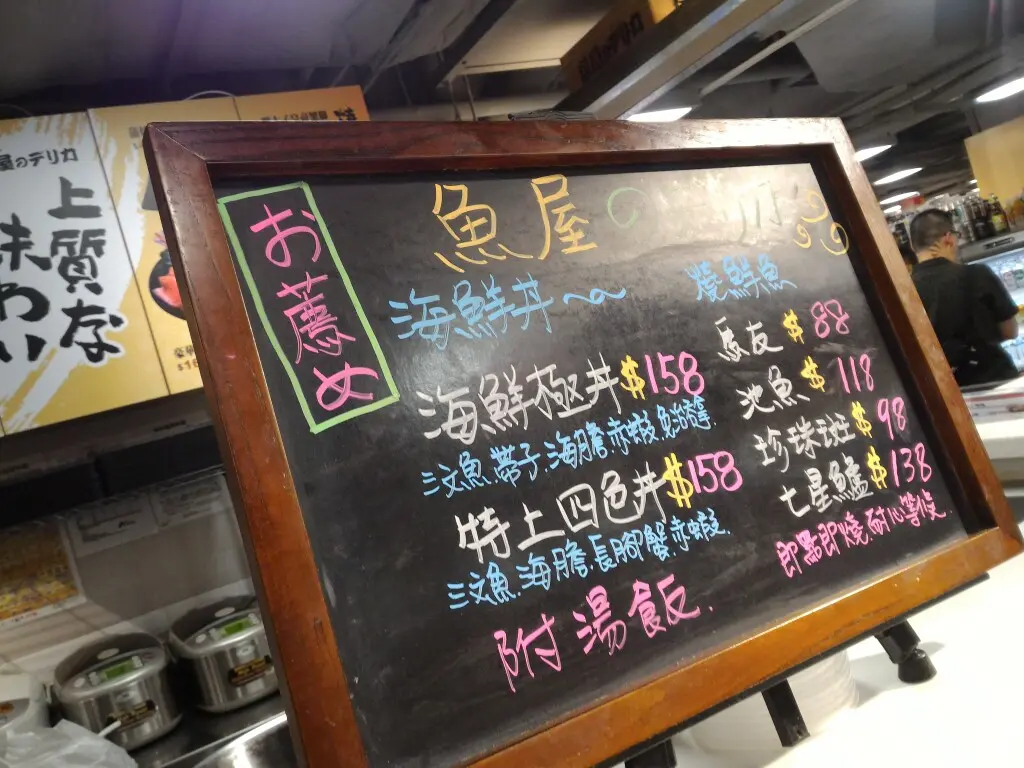 屋のデリカ
上質な
味わい
お薦め
魚屋
海鮮丼
海鮮極丼$158
三文魚.帶子.海膽.赤蝦.魚治等.
特上四色丼$158
三文魚.海膽.長脚蟹.赤蝦.
附湯飯.
燒鮮魚
馬友 $88
池魚 $118
珍珠斑 $98
七星鱸 $138
即點即燒.耐心等候.